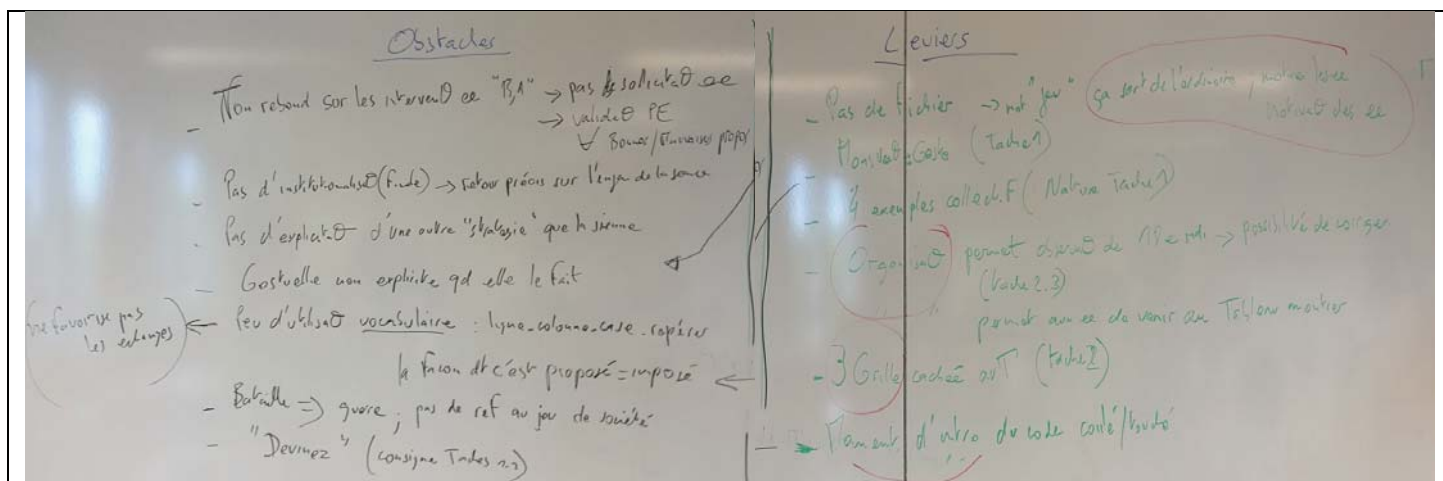 Obstacles
- Non rebond sur les intervent° ee "B,1" → pas de sollicitat° ee
→ validat° PE
∀ Bonnes/Mauvaises propos°
- Pas d'institutionalisat° (finale) → retour précis sur l'enjeu de la séance
- Pas d'explicitat° d'une autre "stratégie" que la sienne
- Gestuelle non explicite qd elle le fait
- Peu d'utilisat° vocabulaire : ligne-colonne-case-repérer
ne favorise pas
les échanges
la façon dt c'est proposé = imposé
- Bataille ⇒ guerre ; pas de ref au jeu de société
- "Devinez" (consigne Taches 1.2)
Leviers
- Pas de fichier → mot "jeu" ça sort de l'ordinaire, motive les ee
motivat° des ee
- Geste (Tache 1)
- 4 exemples collectif (Nature Tache 1)
- Organisat° permet observat° de → possibilité de corriger
(tache 2.3)
permet aux ee de venir au Tableau montrer
- 3 Grille cachée au T (tache 2)
- Moment d'intro du code coulé/touché